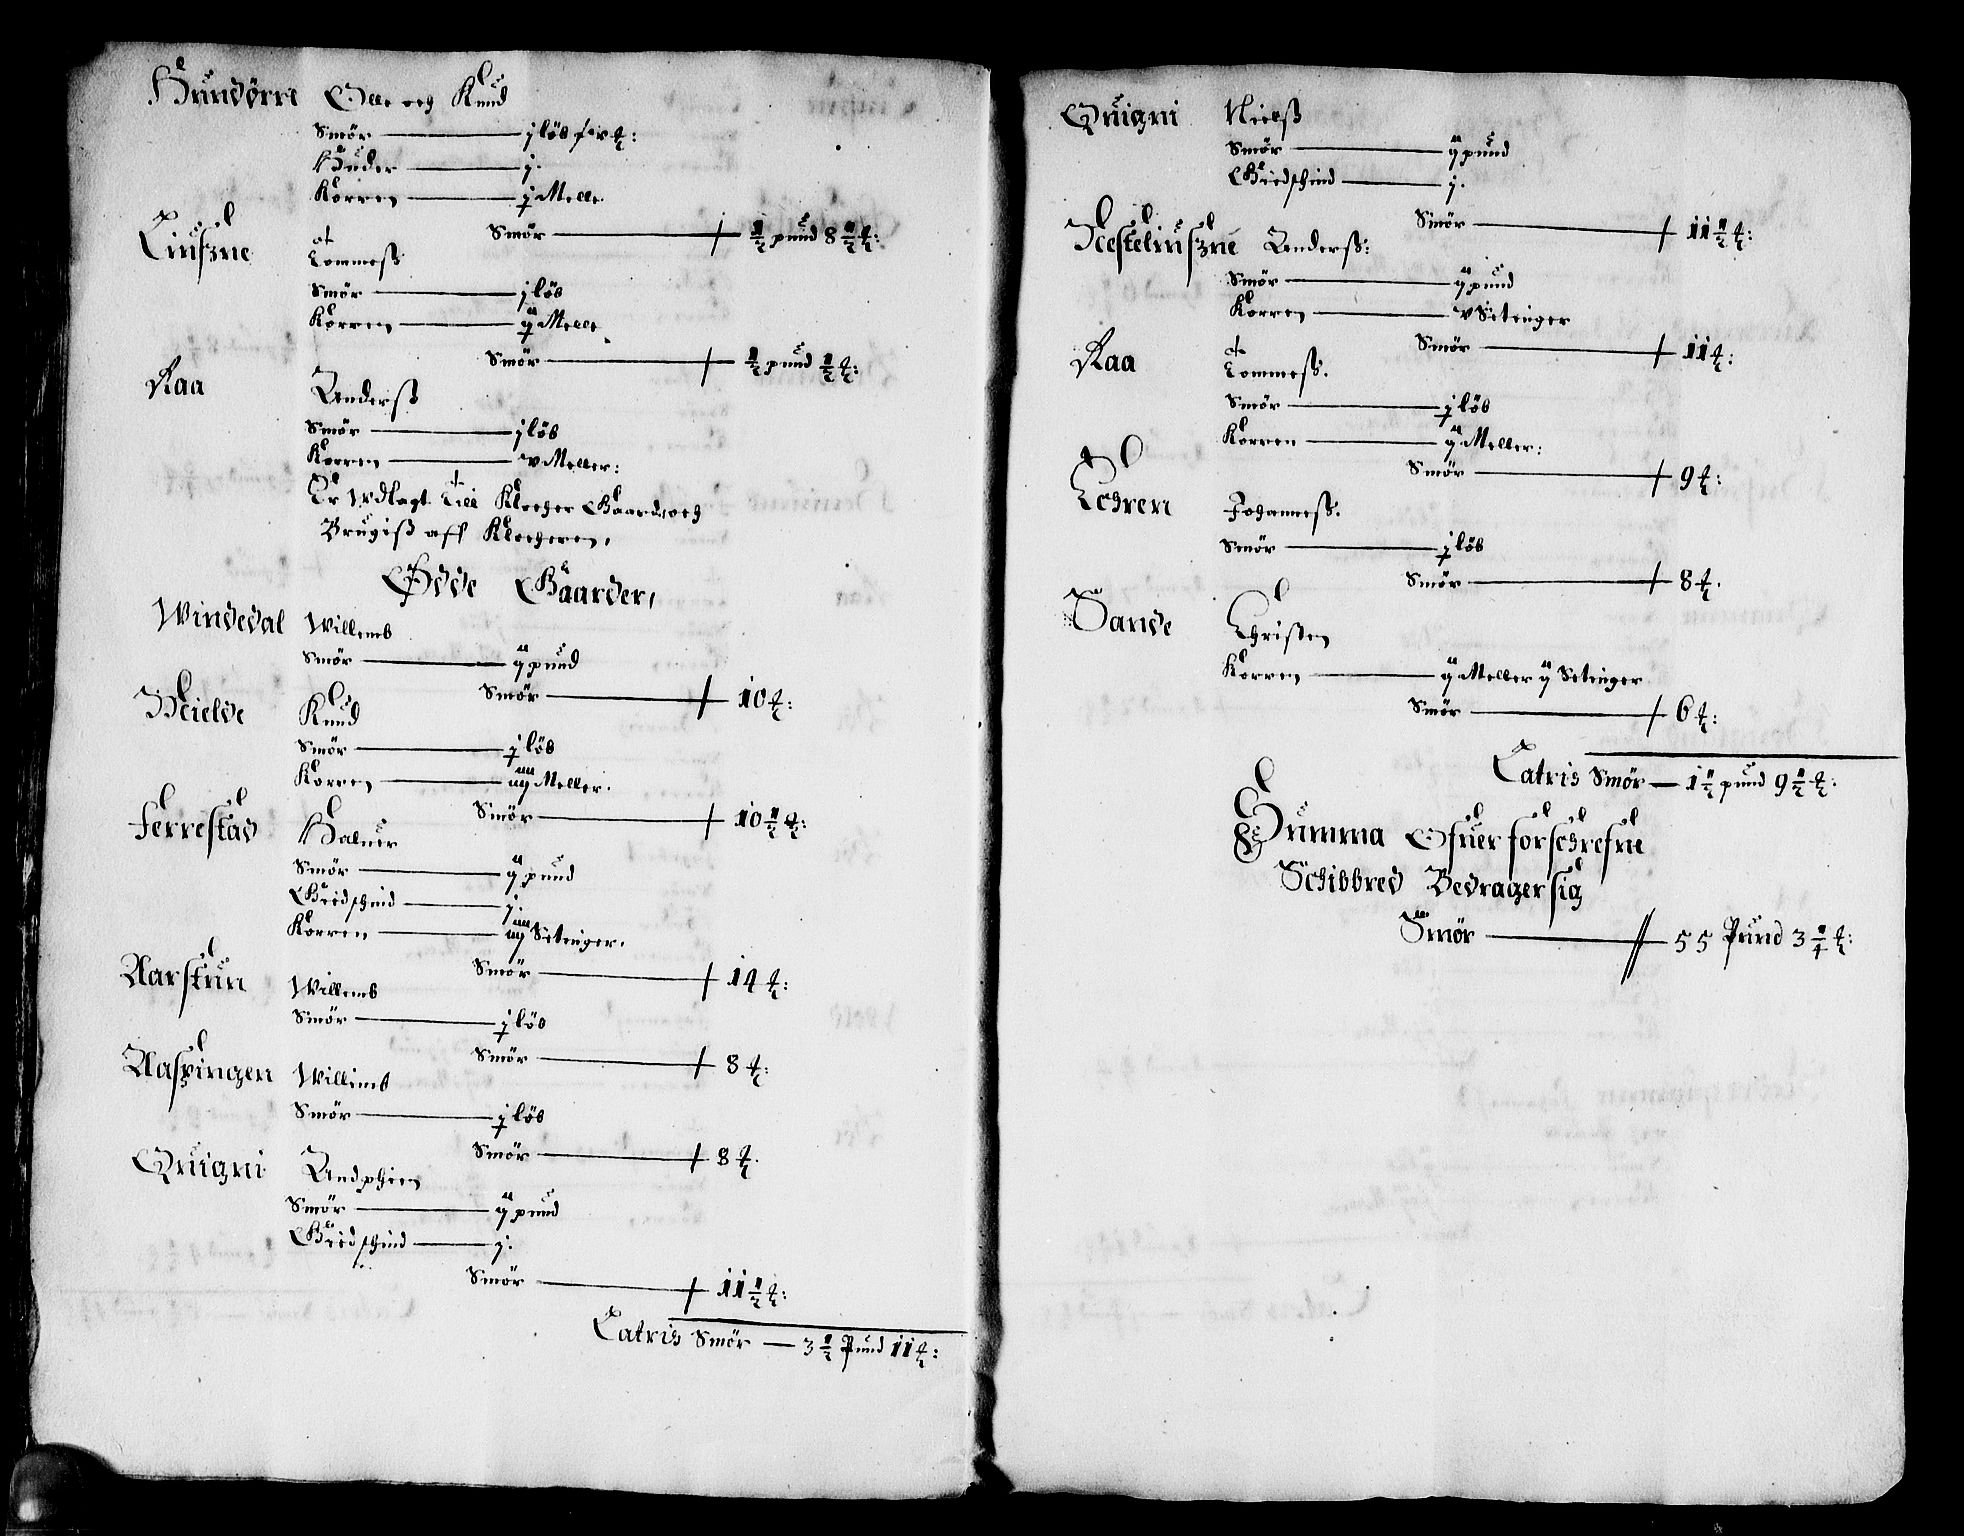 Hundørre Olle och Knud
Smør j løb
Huder j.
Korren j Melle
Smør ½ pund 8½ ℔:
Liufzne Tommeß
Smør j løb
Korren ij Melle
Smør ½ pund ½ ℔:
Aaa Anderß
Smør j løb
Korren v Meller:
Er Vdlagt Till Klocher Gaard, och
Brugiß aff Klocheren,
Ødde Gaarder,
Windedal Willemb
Smør ij pund
Smør 10 ℔:
Knud
Smør j løb
Korren iiij Meller.
Smør 10½ ℔:
Ferrestad Haluer
Smør ij pund
Giedschind j.
Korren iiij Setinger.
Smør 14 ℔:
Aarstun Willemb
Smør j løb
Smør 8 ℔:
Aaspingen Willimb
Smør j løb
Smør 8 ℔.
Quigni Andphien
Smør ij pund
Giedschind j.
Smør 11½ ℔:
Latris Smør 3½ Pund 11 ℔:
Quigni Nielß
Smør ij pund
Giedschind j.
Smør 11½ ℔:
Nesteliufzne Anderß:
Smør ij pund
Korren v Setinger
Smør 11 ℔:
Aaa Tommeß.
Smør j løb
Korren ij Meller:
Smør 9 ℔:
Lehren Johanneß.
Smør j løb
Smør 8 ℔.
Sande Christen
Korren ij Meller ij Setinger
Smør 6 ℔:
Latris Smør 1½ pund 9½ ℔:
Summa Ofuer forschrefne
Schibbred Bedrager sig
Smør 55 Pund 3¼ ℔: